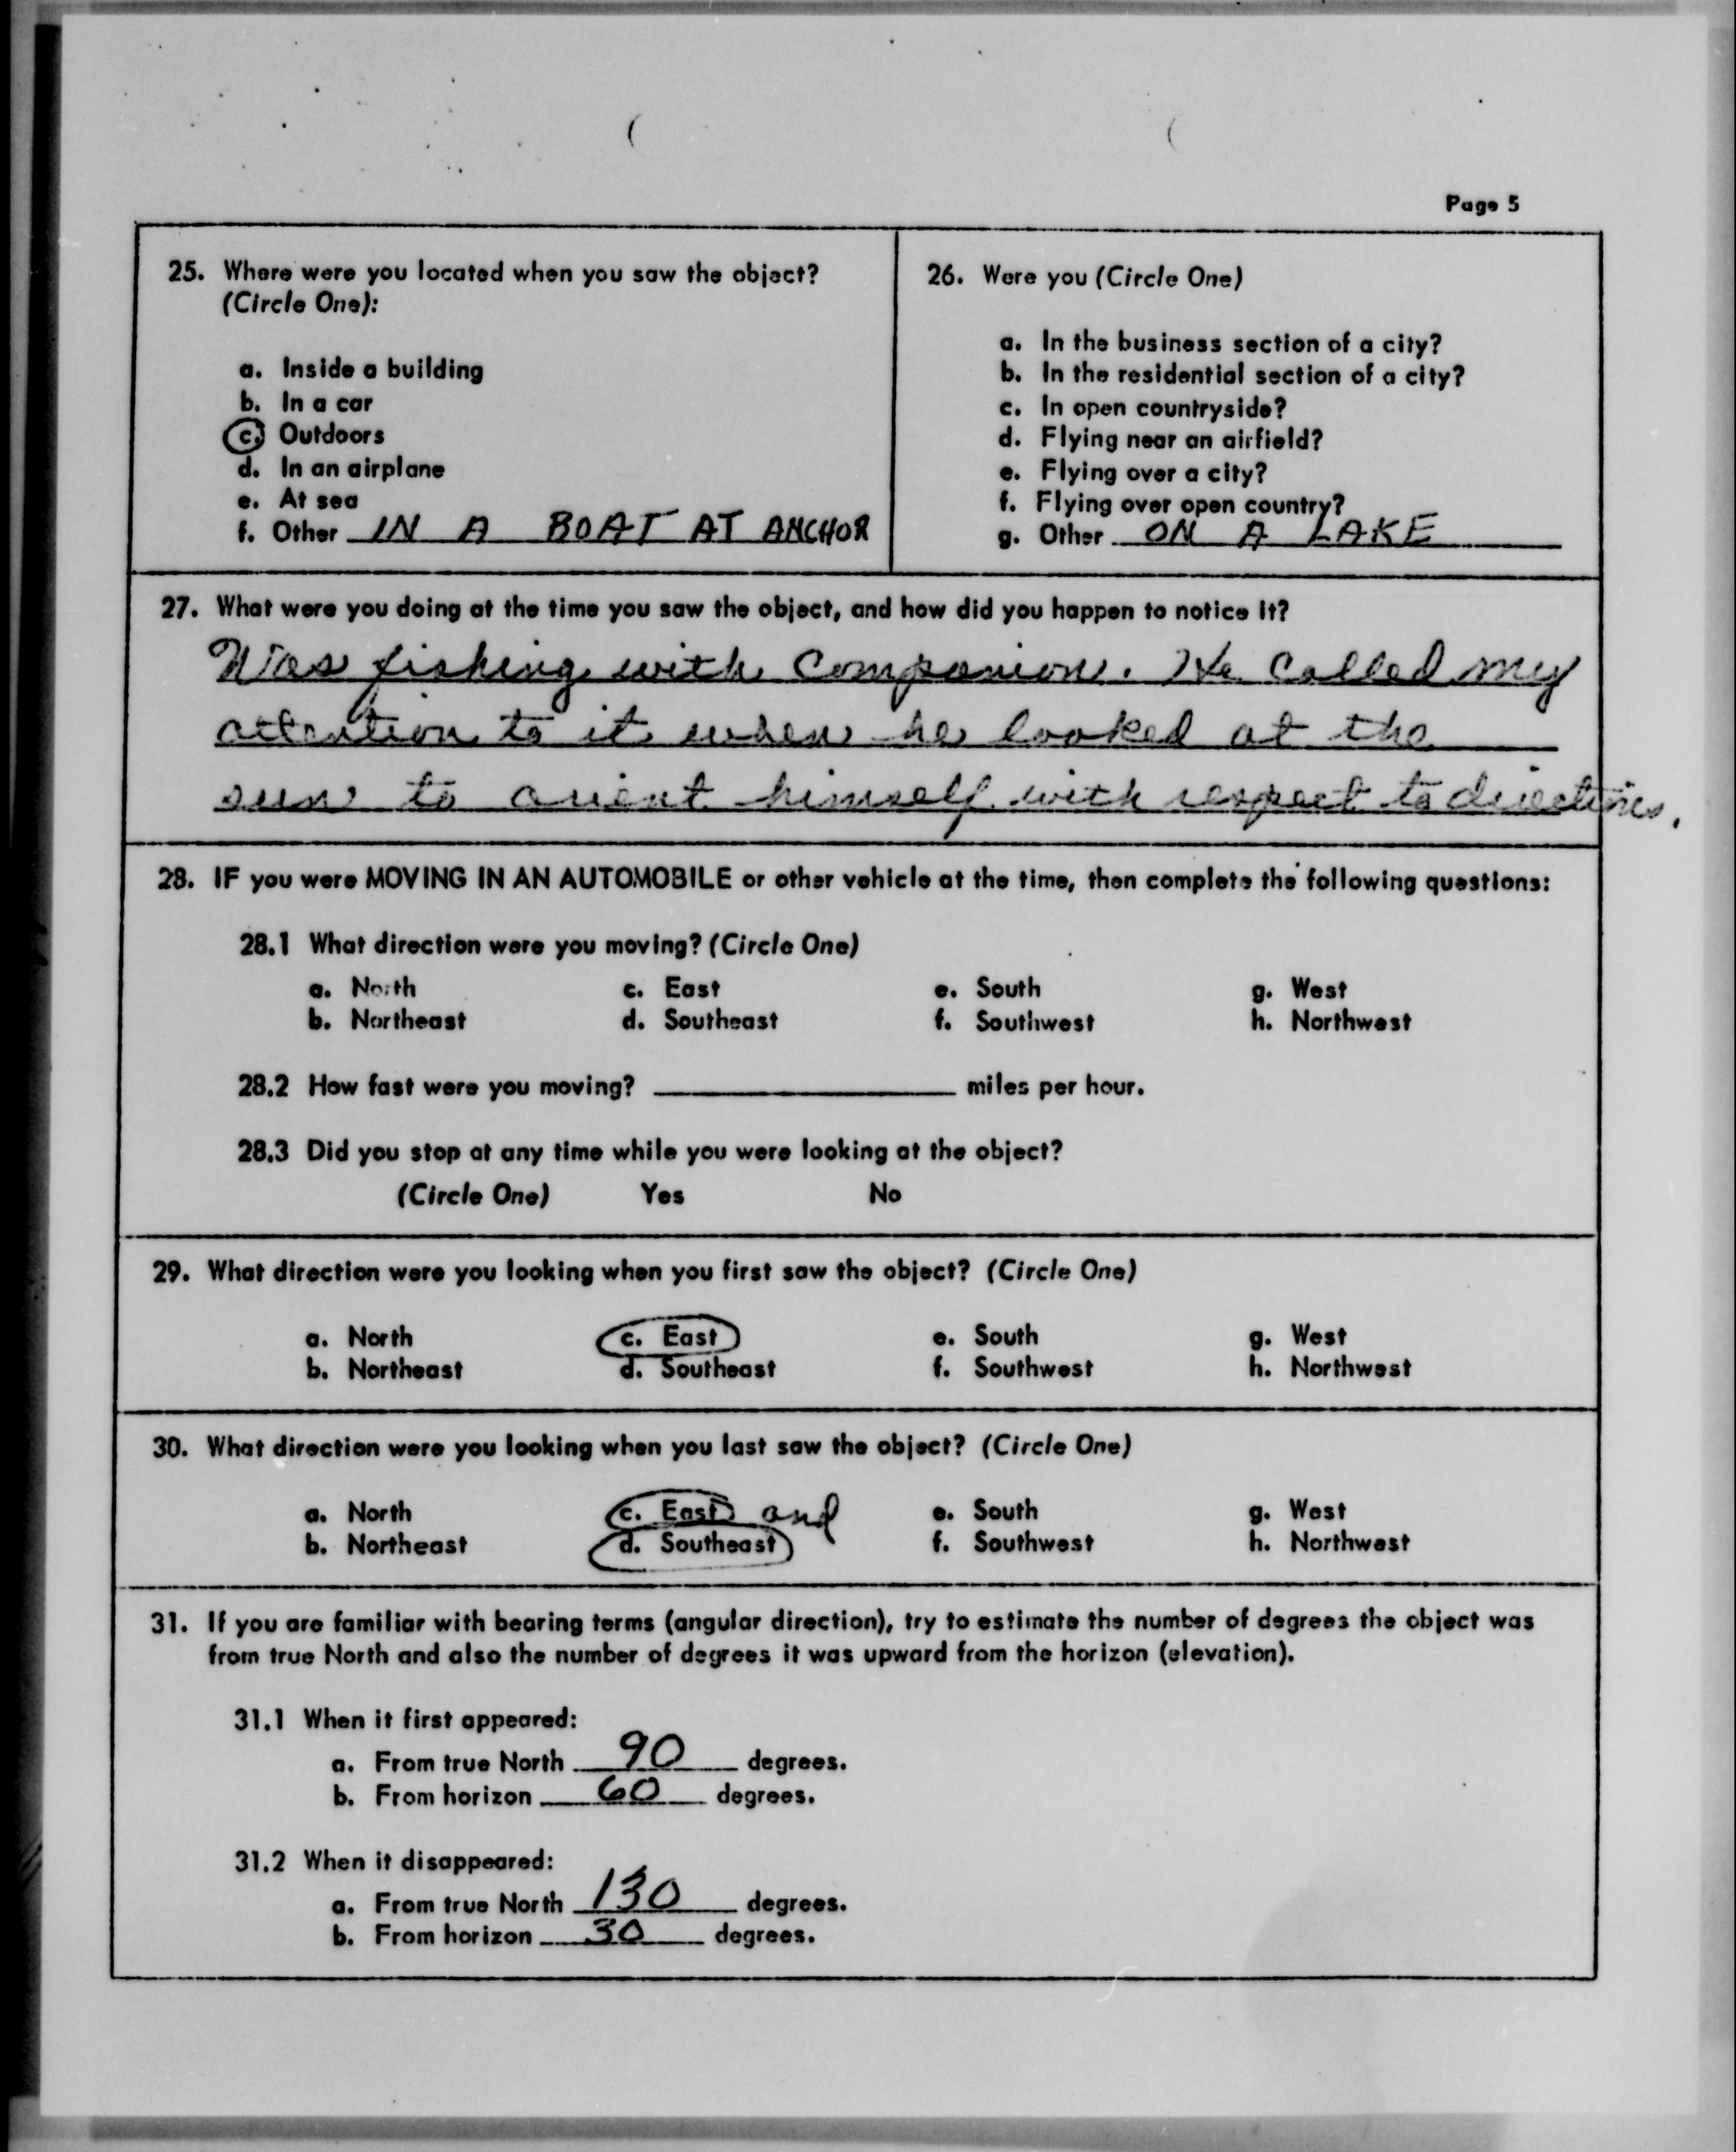 Page 5
25. Where were you located when you saw the object?
(Circle One):
a. Inside a building
b. In a car
c. Outdoors
d. In an airplane
e. At sea
f. Other IN A BOAT AT ANCHOR
26. Were you (Circle One)
a. In the business section of a city?
b. In the residential section of a city?
c. In open countryside?
d. Flying near an airfield?
e. Flying over a city?
f. Flying over open country?
g. Other ON A LAKE
27. What were you doing at the time you saw the object, and how did you happen to notice it?
Was fishing with companion. He called my
attention to it when he looked at the
sun to orient himself with respect to directions.
28. IF you were MOVING IN AN AUTOMOBILE or other vehicle at the time, then complete the following questions:
28.1 What direction were you moving? (Circle One)
a. North c. East e. South g. West
b. Northeast d. Southeast f. Southwest h. Northwest
28.2 How fast were you moving? miles per hour.
28.3 Did you stop at any time while you were looking at the object?
(Circle One) Yes No
29. What direction were you looking when you first saw the object? (Circle One)
a. North c. East e. South g. West
b. Northeast d. Southeast f. Southwest h. Northwest
30. What direction were you looking when you last saw the object? (Circle One)
a. North c. East and e. South g. West
b. Northeast d. Southeast f. Southwest h. Northwest
31. If you are familiar with bearing terms (angular direction), try to estimate the number of degrees the object was
from true North and also the number of degrees it was upward from the horizon (elevation).
31.1 When it first appeared:
a. From true North 90 degrees.
b. From horizon 60 degrees.
31.2 When it disappeared:
a. From true North 130 degrees.
b. From horizon 30 degrees.